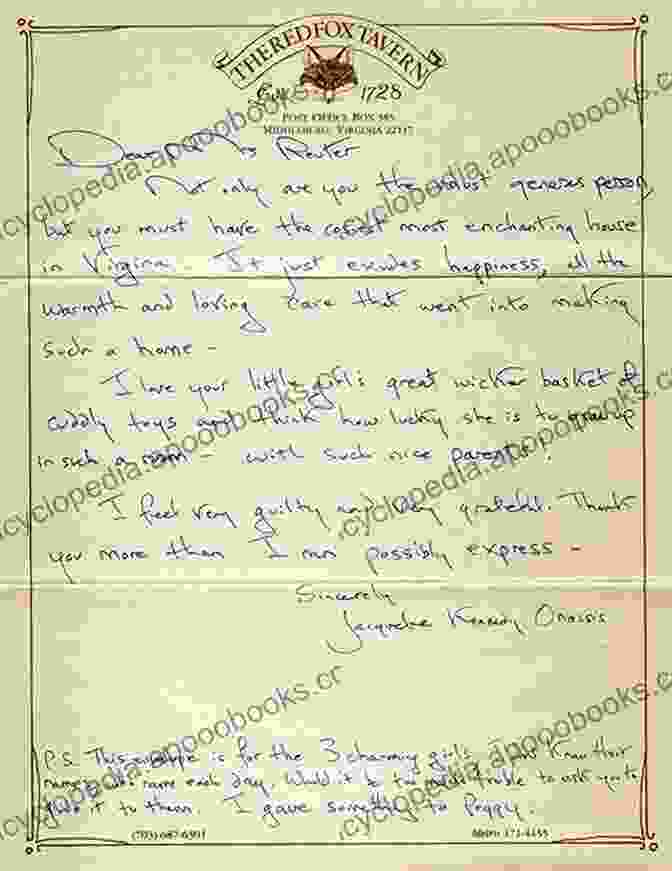 THE RED FOX TAVERN
Est. 1728
POST OFFICE BOX 385
MIDDLEBURG, VIRGINIA 22117
Dear Mrs Reuter
Not only are you the most generous person,
but you must have the cosiest most enchanting house
in Virginia. It just exudes happiness, all the
warmth and loving care that went into making
such a home -
I love your little girl's great wicker basket of
cuddly toys and think how lucky she is to grow up
in such a room - with such nice parents.
I feel very guilty and very grateful. Thank
you more than I can possibly express -
Sincerely
Jacqueline Kennedy Onassis
P.S. This envelope is for the 3 charming girls, I don't know their
names who came each day. Would it be too much trouble to ask you to
give it to them. I gave something to Peggy.
(703) 687-6301
Metro 471-4455
cyclopedia.apooobooks.cr